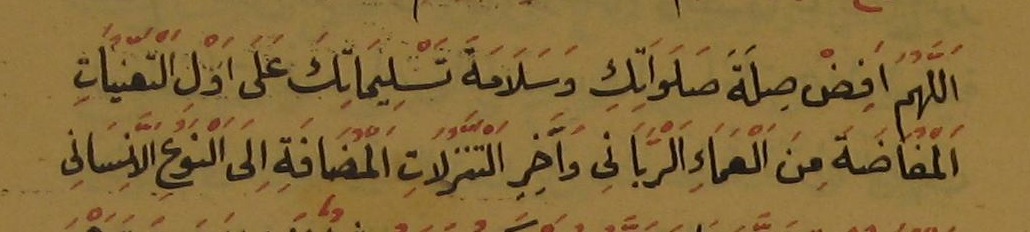 اَللَّهُمَّ اَفِضْ صِلَةَ صَلَوَاتِكَ وَسَلَامَةَ تَسْلِيمَاتِكَ عَلَى اَوَّلِ التَّعَيُّنَاتِ
الْمُفَاضَةِ مِنَ الْعَمَاءِ الرَّبَّانِى وَآخِرِ التَّنَزُّلَاتِ الْمُضَافَةِ اِلَى النَّوْعِ الْاِنْسَانِى